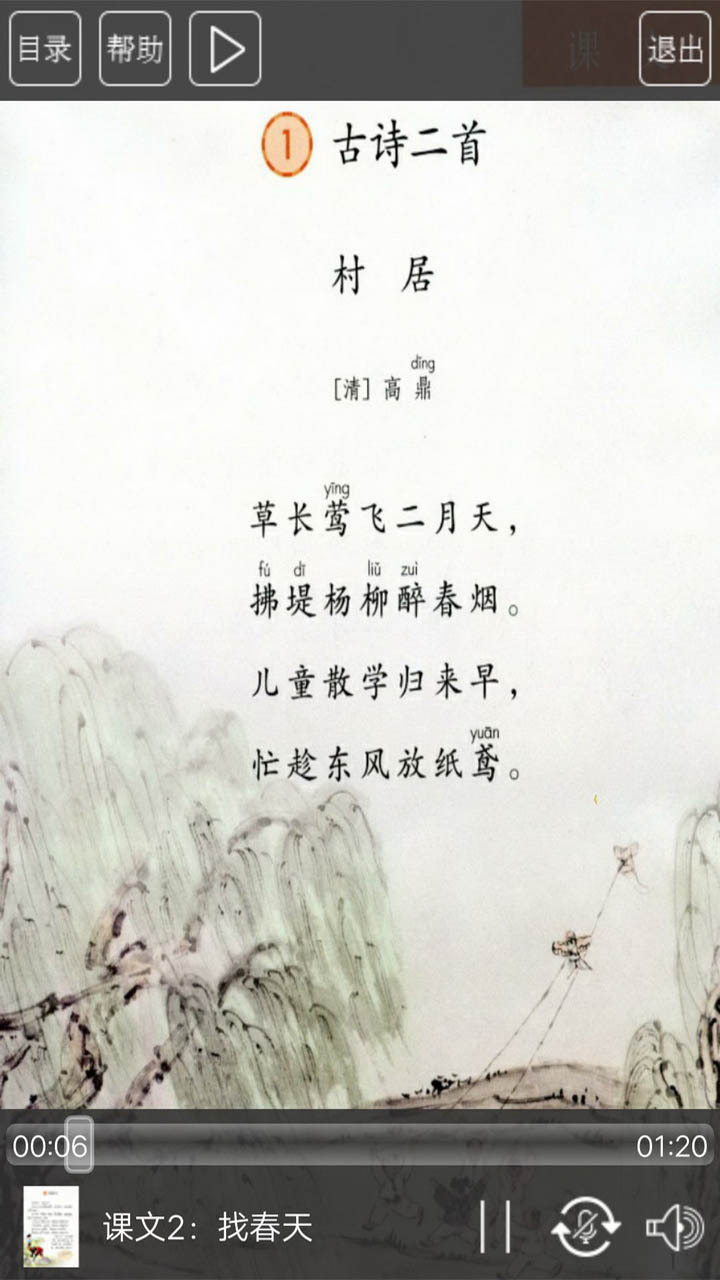 目录 帮助 退出
课
1 古诗二首
村 居
dǐng
[清] 高 鼎
yīng
草长莺飞二月天，
fú dī liǔ zuì
拂堤杨柳醉春烟。
儿童散学归来早，
yuān
忙趁东风放纸鸢。
00:06 01:20
课文2：找春天